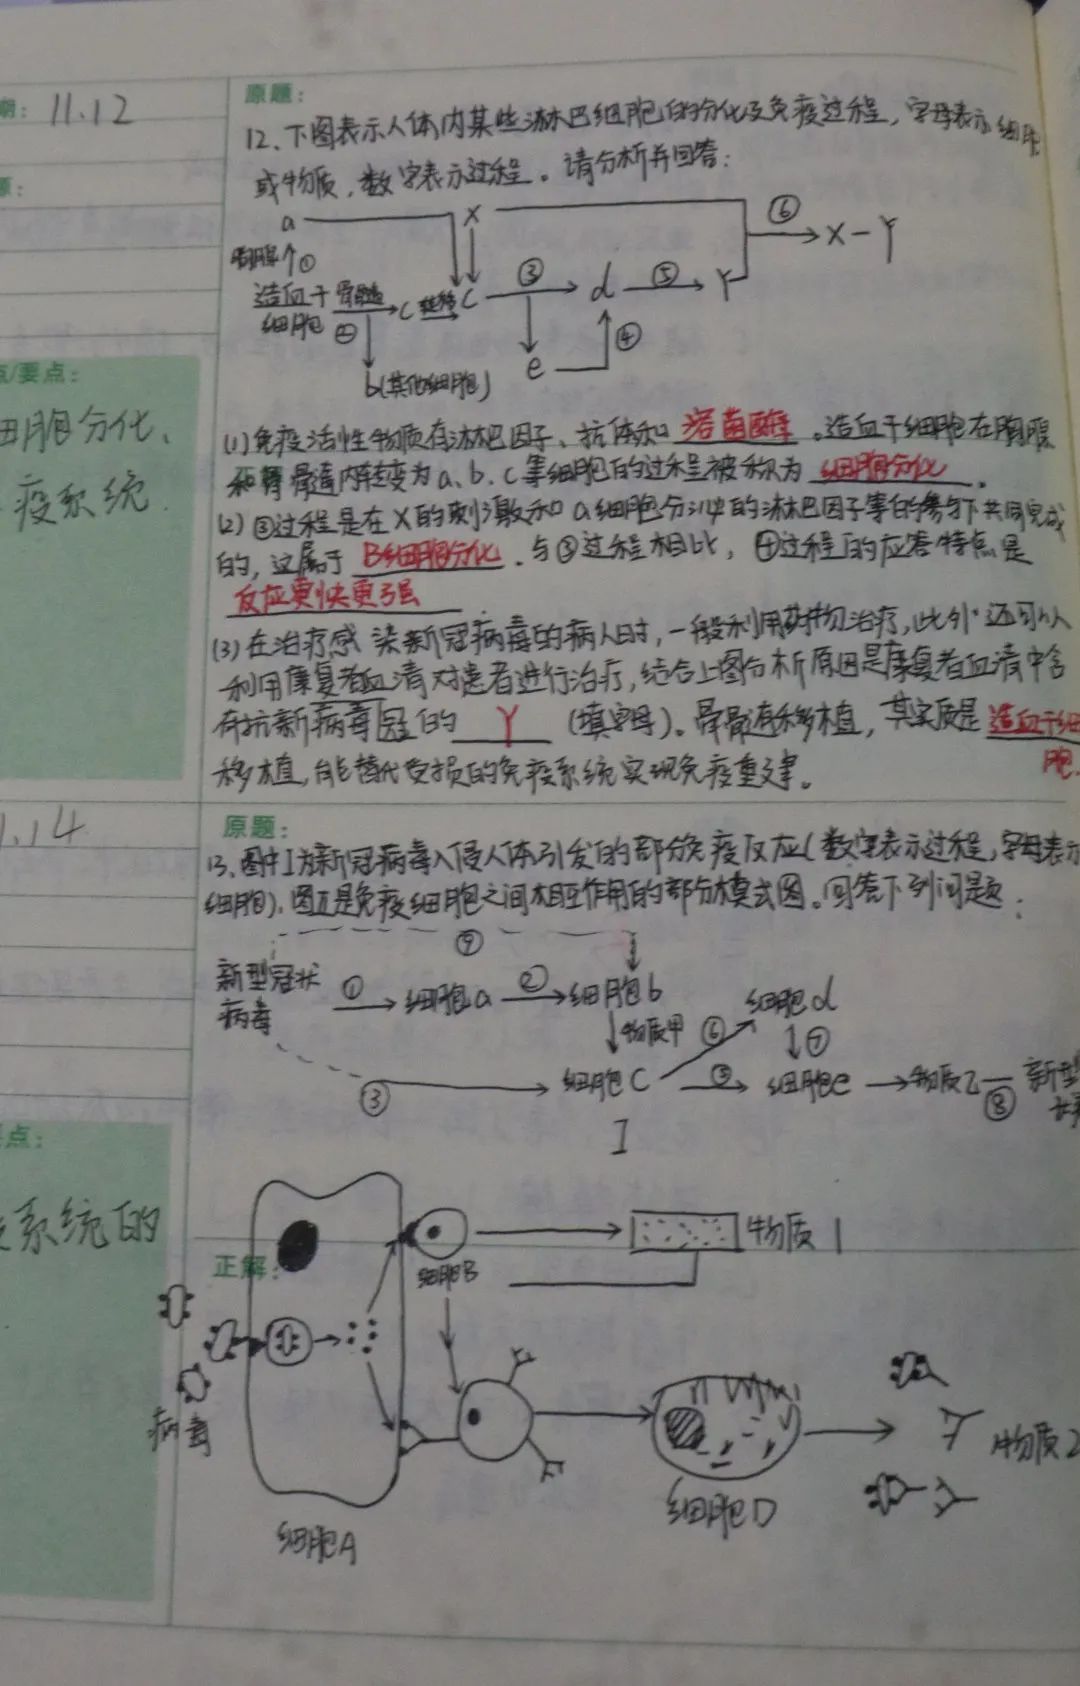 期: 11.12
原题:
12、下图表示人体内某些淋巴细胞的分化及免疫过程,字母表示细胞
或物质,数字表示过程。请分析并回答:
a X ⑥ X-Y
胸腺 ①
造血干 骨髓 c 迁移 C ③ d ⑤ Y
细胞 ② ④
b(其他细胞) e
点/要点:
细胞分化、
疫系统
(1)免疫活性物质有淋巴因子、抗体和 溶菌酶 。造血干细胞在胸腺
和骨髓内转变为a、b、c等细胞的过程被称为 细胞分化 。
(2)③过程是在X的刺激和a细胞分泌的淋巴因子等的参与下共同完成
的,这属于 B细胞分化 .与③过程相比,④过程的应答特点是
反应更快更强
(3)在治疗感染新冠病毒的病人时,一般利用药物治疗,此外还可以
利用康复者血清对患者进行治疗,结合上图分析原因是康复者血清中含
有抗新病毒冠的 Y (填字母)。骨髓移植,其实质是 造血干细
胞
移植,能替代受损的免疫系统实现免疫重建。
1.14
原题:
13、图中I为新冠病毒入侵人体引发的部分免疫反应(数字表示过程,字母表示
细胞),图II是免疫细胞之间相互作用的部分模式图。回答下列问题:
⑨
新型冠状 ① 细胞a ② 细胞b 细胞d
病毒 物质甲 ⑥ ⑦
③ 细胞C ⑤ 细胞e 物质乙 ⑧ 新型
I
点:
系统的
正解:
物质1
细胞B
病毒
物质2
细胞A
细胞D